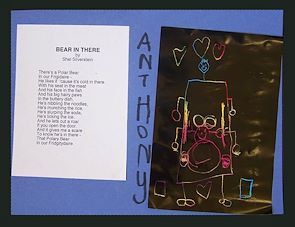 BEAR IN THERE
by
Shel Silverstein
There's a Polar Bear
In our Frigidaire--
He likes it 'cause it's cold in there.
With his seat in the meat
And his face in the fish
And his big hairy paws
In the buttery dish,
He's nibbling the noodles,
He's munching the rice,
He's slurping the soda,
He's licking the ice.
And he lets out a roar
If you open the door.
And it gives me a scare
To know he's in there--
That Polary Bear
In our Fridgitydaire.
ANTHONY